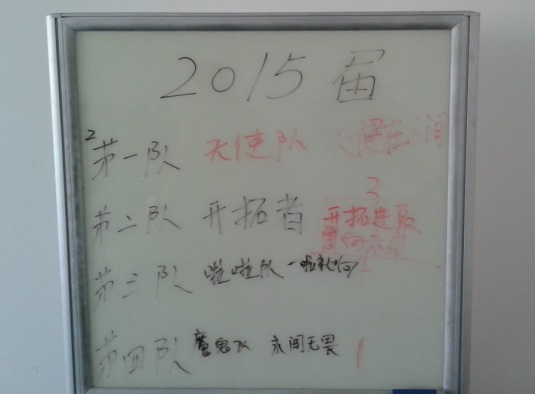 2015届
2 第一队 天使队 天使在人间
3
第二队 开拓者 开拓进取
第三队 啦啦队
第四队 魔鬼队 永间无畏 1